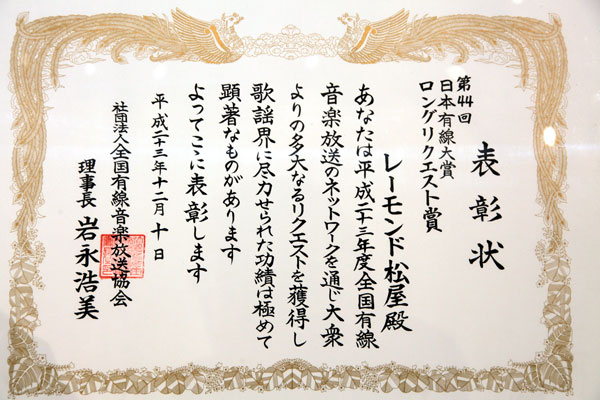 表彰状
第44回
日本有線大賞
ロングリクエスト賞
レーモンド松屋殿
あなたは平成二十三年度全国有線
音楽放送のネットワークを通じ大衆
よりの多大なるリクエストを獲得し
歌謡界に尽力せられた功績は極めて
顕著なものがあります
よってここに表彰します
平成二十三年十二月十日
社団法人全国有線音楽放送協会
理事長 岩永浩美